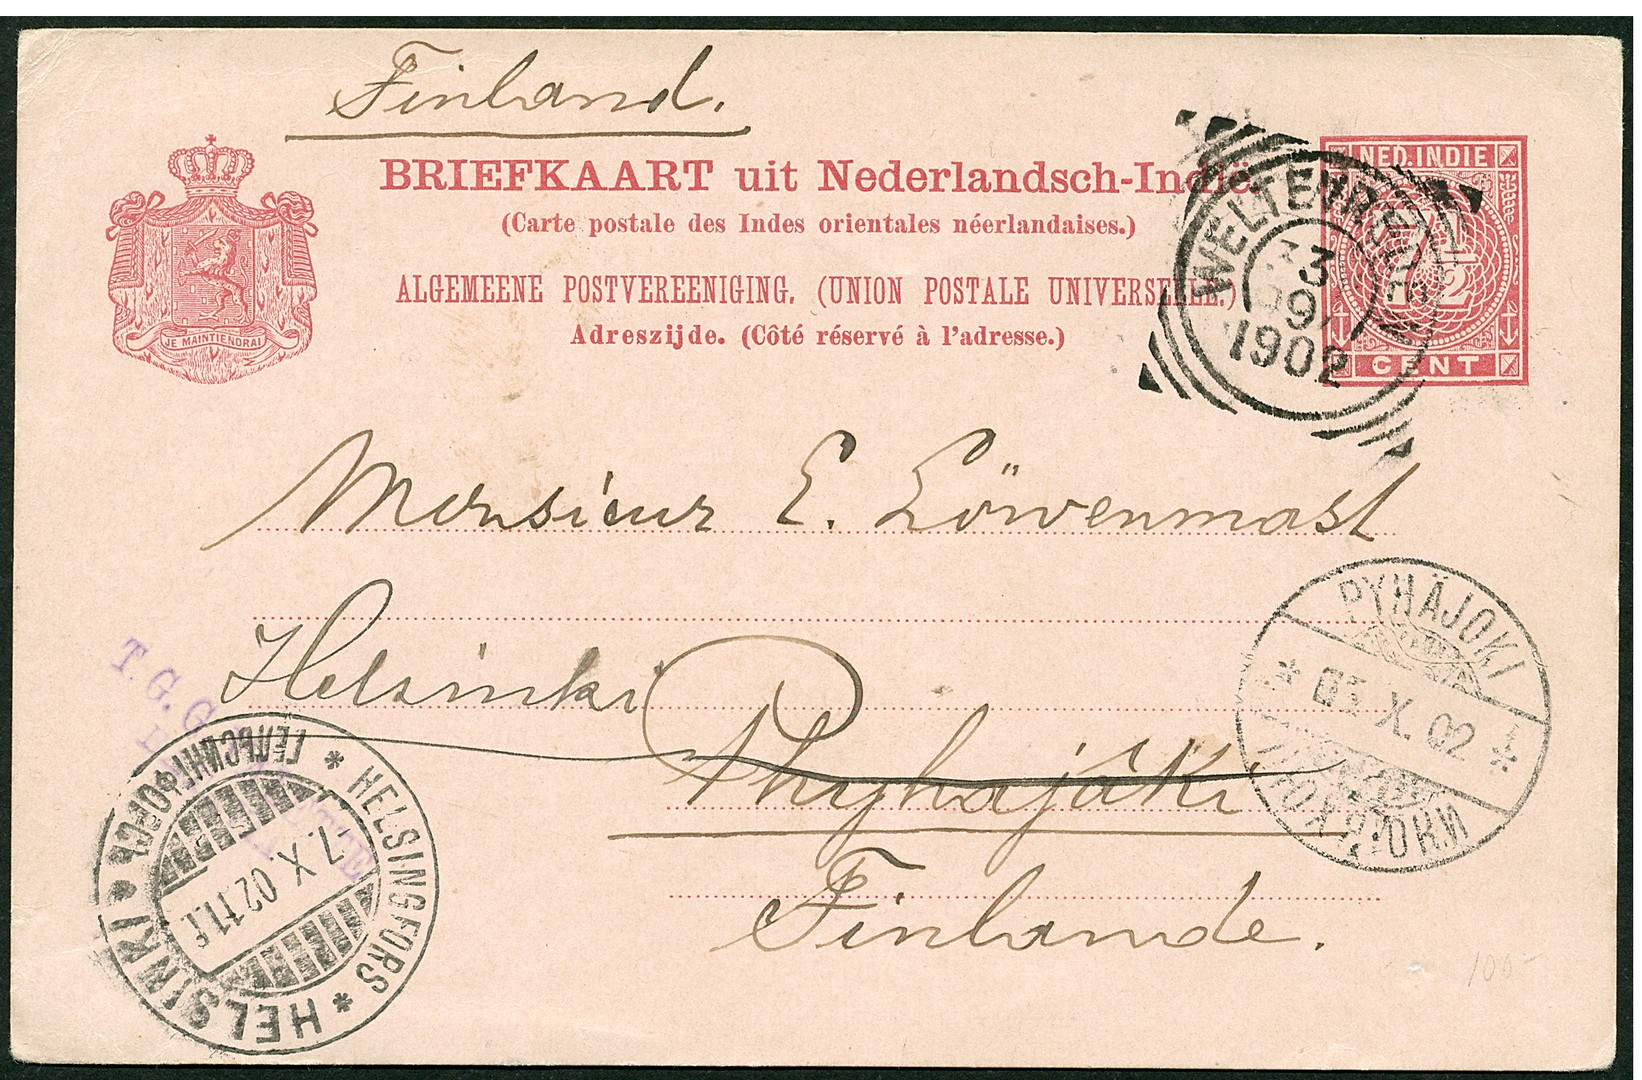 Finland.
BRIEFKAART uit Nederlandsch-Indië
(Carte postale des Indes orientales néerlandaises.)
ALGEMEENE POSTVEREENIGING. (UNION POSTALE UNIVERSELLE.)
Adreszijde. (Côté réservé à l'adresse.)
JE MAINTIENDRAI
NED. INDIE
7½
CENT
WELTEVREDEN
3
9
1902
Monsieur E. Löwenmost
Helsinki
Phyhäjôki
Finlande.
PYHÄJOKI
03. X. 02
T. G. G
HELSINGFORS
HELSINKI
ГЕЛЬСИНГФОРСЪ
7. X. 02. 11. f.
100-